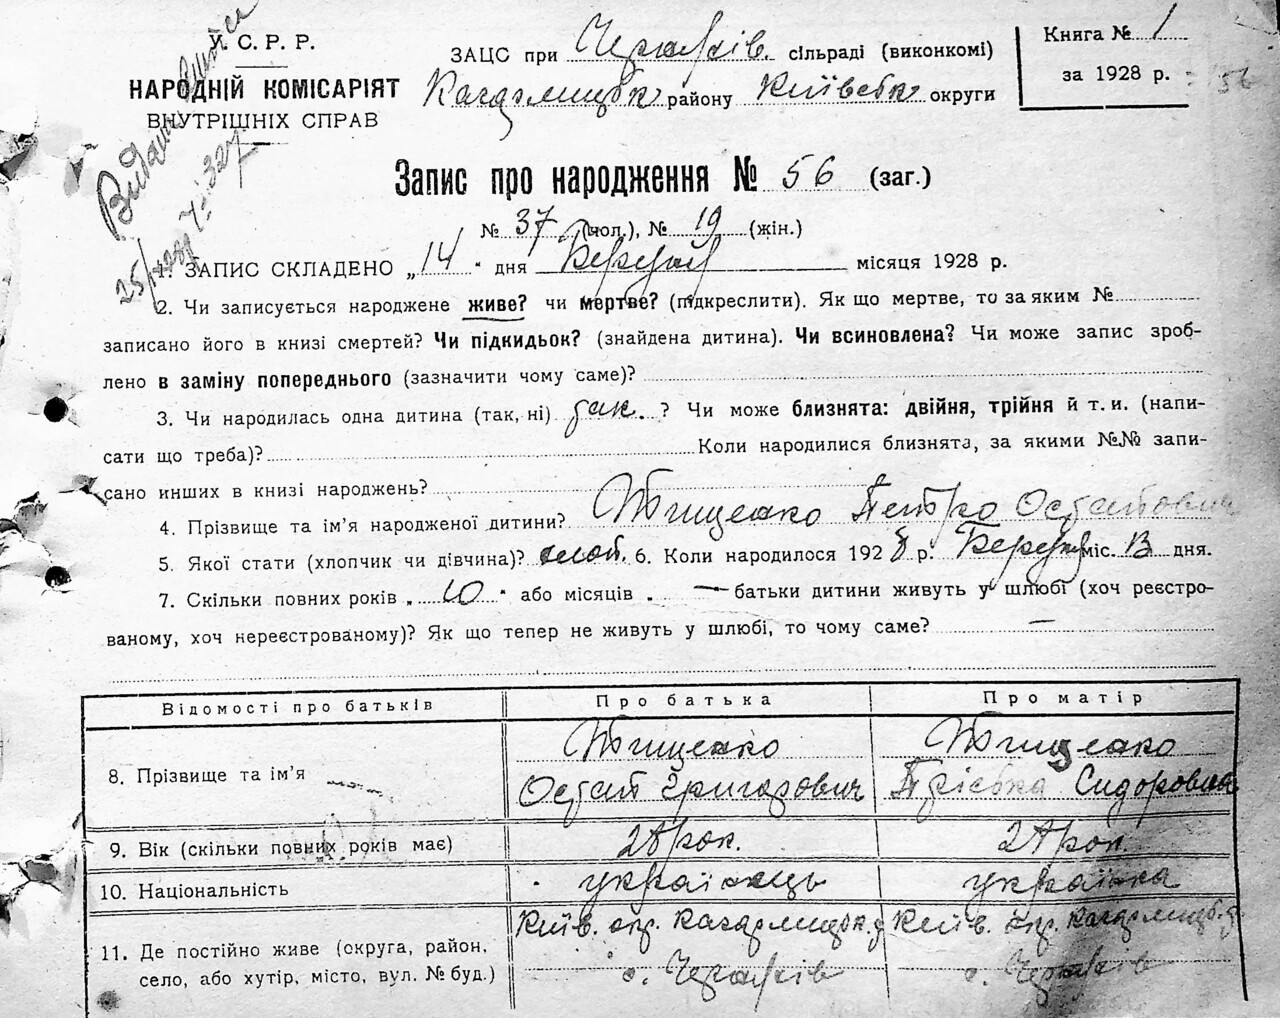 У. С. Р. Р.
НАРОДНІЙ КОМІСАРІЯТ
ВНУТРІШНІХ СПРАВ
ЗАЦС при сільраді (виконкомі)
Кагарлицьк району Київськ округи
Книга № 1
за 1928 р.
Запис про народження № 56 (заг.)
№ 37 (чол.), № 19 (жін.)
1. ЗАПИС СКЛАДЕНО „14" дня Березня місяця 1928 р.
2. Чи записується народжене живе? чи мертве? (підкреслити). Як що мертве, то за яким №
записано його в книзі смертей? Чи підкидьок? (знайдена дитина). Чи всиновлена? Чи може запис зроб-
лено в заміну попереднього (зазначити чому саме)?
3. Чи народилась одна дитина (так, ні) так. ? Чи може близнята: двійня, трійня й т. и. (напи-
сати що треба)? Коли народилися близнята, за якими №№ запи-
сано инших в книзі народжень?
4. Прізвище та ім'я народженої дитини? Тищенко Петро Остапович
5. Якої стати (хлопчик чи дівчина)? хлоп. 6. Коли народилось 1928 р. Березня міс. 13 дня.
7. Скільки повних років „10" або місяців „ — батьки дитини живуть у шлюбі (хоч реєстро-
ваному, хоч нереєстрованому)? Як що тепер не живуть у шлюбі, то чому саме? —
Відомості про батьків Про батька Про матір
8. Прізвище та ім'я Тищенко Остап Григорович Тищенко Сидоровна
9. Вік (скільки повних років має) 28 рок. рок.
10. Національність українець українка
11. Де постійно живе (округа, район,
село, або хутір, місто, вул. № буд.)
Київ. окр. Кагарлицьк. р. Київ. окр. Кагарлицьк. р.
с. с.